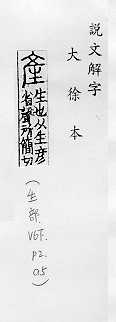 說文解字
大徐本
產
生也从生彦
省聲所簡切
(生部. V6F. P2. 05)